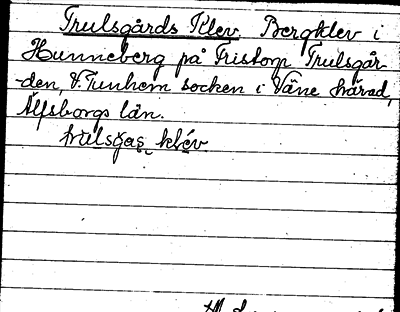 Trulsgårds Klev. Bergklev i
Hunneberg på Fristorp Trulsgår-
-den, V. Tunhem socken i Väne härad,
Älfsborgs län.
trulsgas klév